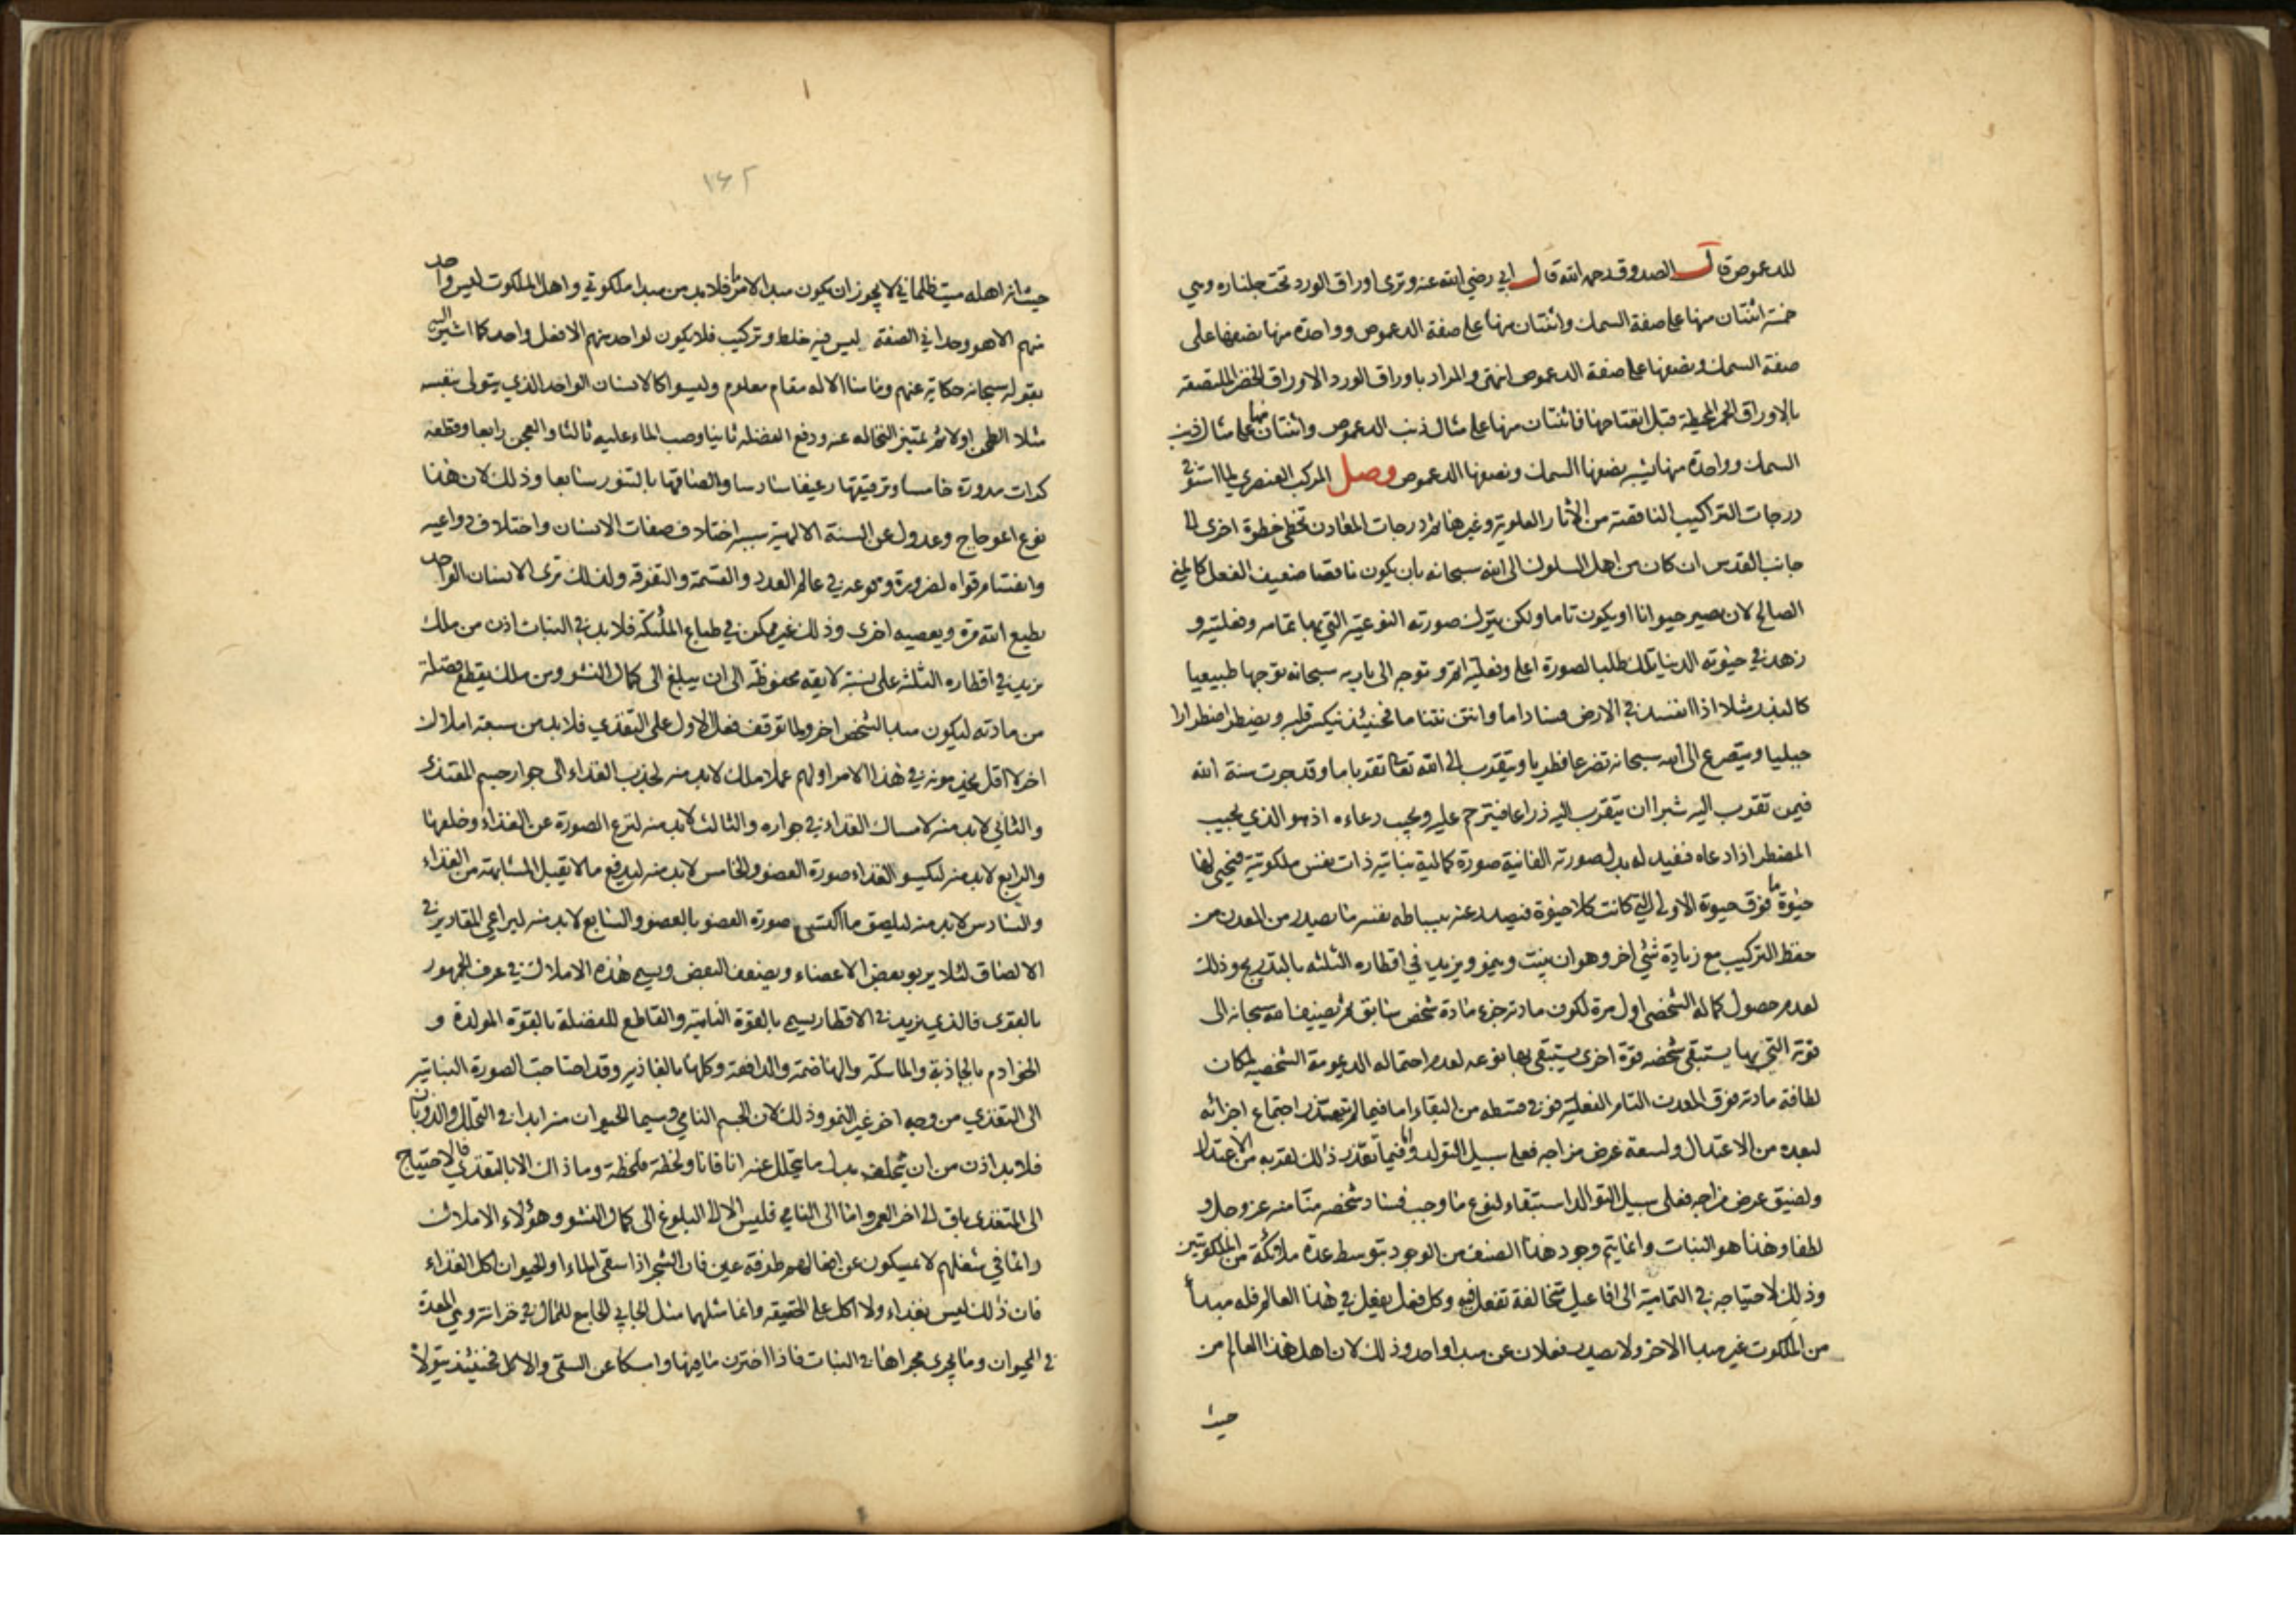 للدعموص قال الصدوق رحمه الله قال ابي رضي الله عنه وترى اوراق الورد تحت جلناره وهي
خمسة اثنتان منها على صفة السمك واثنتان منها على صفة الدعموص وواحدة منها نصفها على
صفة السمك ونصفها على صفة الدعموص انتهى والمراد باوراق الورد الاوراق الخضر الملتصقة
بالاوراق الحمر المحيطة قبل انفتاحها فاثنتان منها على مثال ذنب الدعموص واثنتان منها على مثال ذنب
السمك وواحدة منها يشبه نصفها السمك ونصفها الدعموص وصل المركب العنصري لما استوفى
درجات التراكيب الناقصة من الآثار العلوية وغيرها ثم درجات المعادن تخطى خطوة اخرى الى
جانب القدس ان كان من اهل السلوك الى الله سبحانه بان يكون ناقصا ضعيف الفعل كالمني
الصالح لان يصير حيوانا او يكون تاما ولكن يترك صورته النوعية التي بها تمامه وفعليته و
زهد في حيوته الدنيا تلك طلبا لصورة اعلى وفعلية اتم وتوجه الى باريه سبحانه توجها طبيعيا
كالبذر مثلا اذا انفسد في الارض فسادا ما وانتن نتنا ما فحينئذ ينكسر قلبه ويضطر اضطرارا
جبليا ويتضرع الى الله سبحانه تضرعا فطريا ويتقرب الى الله تعالى تقربا ما وقد جرت سنة الله
فيمن تقرب اليه شبرا ان يتقرب اليه ذراعا فيترحم عليه ويجيب دعاءه اذ هو الذي يجيب
المضطر اذا دعاه فيفيد له بدل صورته الفانية صورة كمالية نباتية ذات نفس ملكوتية فيحيى لها
حيوة ما فوق حيوة الاولى التي كانت كلا حيوة فيصدر عنه ببساطه نفسه ما يصدر من المعدن من
حفظ التركيب مع زيادة شئ اخر وهو ان ينبت وينمو ويزيد في اقطاره الثلثة بالتدريج وذلك
لعدم حصول كماله الشخصي اول مرة لكون مادته جزء مادة شخص سابق ثم يضيف الله سبحانه الى
قوته التي بها يستبقى شخصه قوة اخرى يستبقى بها نوعه لعدم احتماله الديمومة الشخصية لمكان
لطافة مادته فوق المعدن التام الفعلية فوفى قسطه من البقاء اما فيما لم يتعذر اجتماع اجزائه
لبعده من الاعتدال ولسعة عرض مزاجه فعلى سبيل التولد واما فيما تعذر ذلك لقربه من الاعتدال
ولضيق عرض مزاجه فعلى سبيل التوالد استبقاء لنوع ما وجب فساد شخصه منّا منه عز وجل و
لطفا وهذا هو النبات وانما يتم وجود هذا الصنف من الوجود بتوسط عدة ملائكة من الملكوتيين
وذلك لاحتياجه في التمامية الى افاعيل متخالفة تفعل فيه وكل فعل يفعل في هذا العالم فله مبدأ
من الملكوت غير مبدا الاخر ولا يصدر فعلان عن مبدا واحد وذلك لان اهل هذا العالم من
حيث
١٦٢
حيث انه اهله ميت ظلماني لا يجوز ان يكون مبدا لامر ما فلا بد من مبدا ملكوتي واهل الملكوت ليس واحد
منهم الا هو وحداني الصفة ليس فيه خلط وتركيب فلا يكون لواحد منهم الا فعل واحد كما اشير اليه
بقوله سبحانه حكاية عنهم وما منا الا له مقام معلوم وليسوا كالانسان الواحد الذي يتولى بنفسه
مثلا الطحن اولا ثم تمييز النخاله عنه ودفع الفضلة ثانيا وصب الماء عليه ثالثا والعجن رابعا وقطعه
كرات مدورة خامسا وترقيقها رغيفا سادسا والصاقها بالتنور سابعا وذلك لان هذا
نوع اعوجاج وعدول عن السنة الالهية سببه اختلاف صفات الانسان واختلاف دواعيه
وانقسام قواه لضرورة وقوعه في عالم العدد والقسمة والتفرقه ولذلك ترى الانسان الواحد
يطيع الله مرة ويعصيه اخرى وذلك غير ممكن في طباع الملئكة فلا بد في النبات اذن من ملك
يزيد في اقطاره الثلثة على نسبة لايقة محفوظة الى ان يبلغ الى كمال النشو ومن ملك يقطع فضلة
من مادته ليكون مبدا لشخص اخر ولما توقف فعل الاول على التغذي فلا بد من سبعة املاك
اخر لا اقل يخدمونه في هذا الامر اولهم عملا ملك لابد منه لجذب الغذاء الى جوار جسم المغتذي
والثاني لابد منه لامساك الغذاء في جواره والثالث لابد منه لنزع الصورة عن الغذاء وخلعها
والرابع لابد منه ليكسو الغذاء صورة العضو والخامس لابد منه ليدفع ما لا يقبل المشابهة من الغذاء
والسادس لابد منه ليلصق ما اكتسى صورة العضو بالعضو والسابع لابد منه ليراعي المقادير في
الالصاق لئلا يربو بعض الاعضاء ويضعف البعض ويسمى هذه الاملاك في عرف الجمهور
بالقوى فالذي يزيد في الاقطار يسمى بالقوة النامية والقاطع للفضلة بالقوة المولدة و
الخوادم بالجاذبة والماسكة والهاضمة والدافعة وكلها بالغاذية وقد احتاجت الصورة النباتية
الى التغذي من وجه اخر غير النمو وذلك لان الجسم النامي وسيما الحيوان منه ابدا في التحلل والذوبان
فلا بد اذن من ان يتخلف بدل ما يتحلل عنه انا فانا ولحظة فلحظة وما ذاك الا بالتغذي فالاحتياج
الى المتغذي باق الى اخر العمر واما الى النامي فليس الا الى البلوغ الى كمال النشو وهؤلاء الاملاك
دائما في شغلهم لا يمسكون عن افعالهم طرفة عين فان الشجر اذا سقى الماء او الحيوان اكل الغذاء
فان ذلك ليس بغذاء ولا اكل على الحقيقه وانما مثلهما مثل الجابي الجامع للمال في خزانته وهي المعدة
في الحيوان وما يجري مجراها في النبات فاذا اختزن ما فيها وامسكا عن السقي والاكل فحينئذ يتولاه